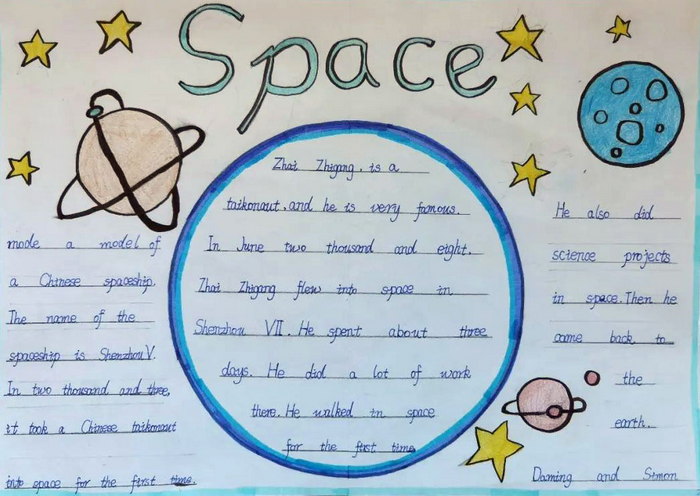 Space
Zhai Zhigang, is a
taikonaut, and he is very famous.
In June two thousand and eight,
Zhai Zhigang flew into space in
Shenzhou VII. He spent about three
days. He did a lot of work
there. He walked in space
for the first time
He also did
science projects
in space. Then he
came back to
the
earth.
Daming and Simon
made a model of
a Chinese spaceship.
The name of the
spaceship is Shenzhou V.
In two thousand and three,
it took a Chinese taikonaut
into space for the first time.